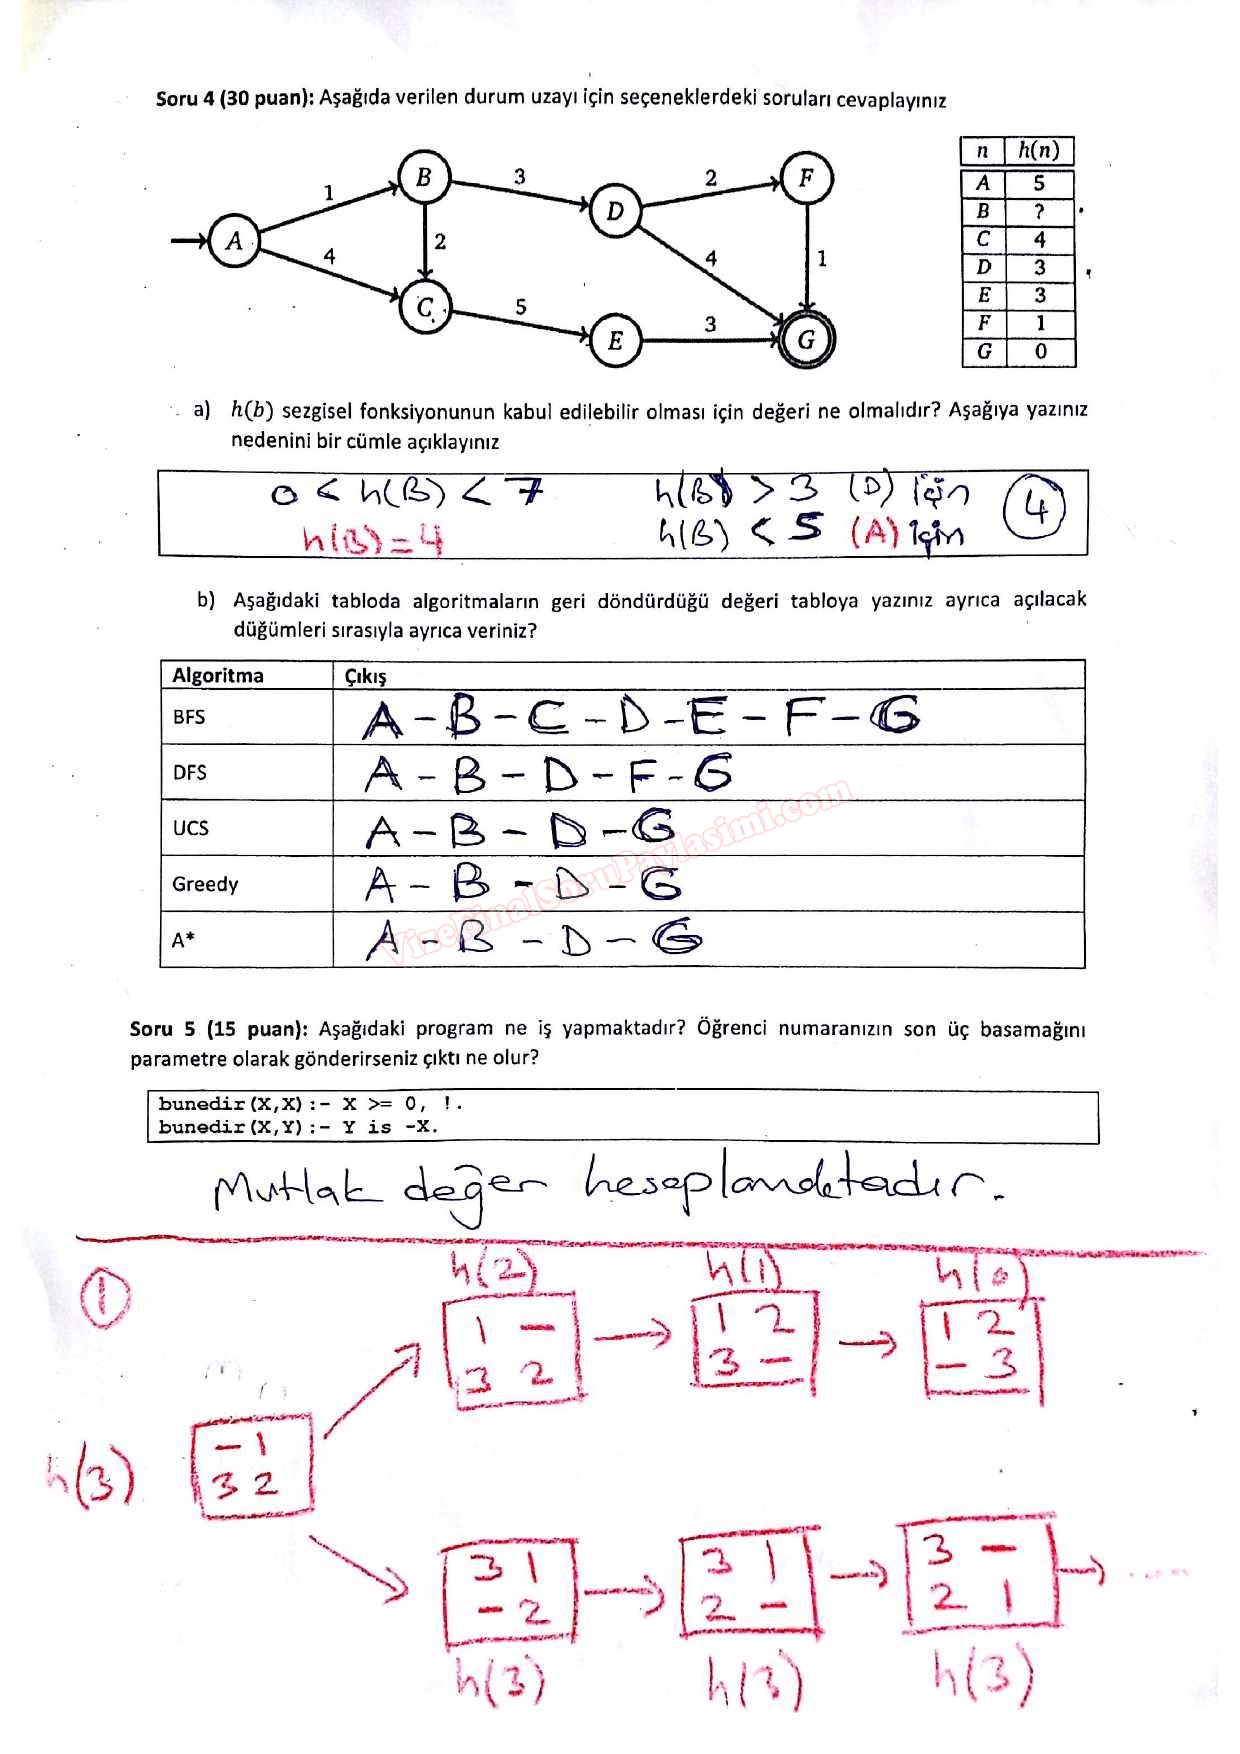 Soru 4 (30 puan): Aşağıda verilen durum uzayı için seçeneklerdeki soruları cevaplayınız
A B C D E F G
1 4 2 3 5 2 4 3 1
n h(n)
A 5
B ?
C 4
D 3
E 3
F 1
G 0
a) h(b) sezgisel fonksiyonunun kabul edilebilir olması için değeri ne olmalıdır? Aşağıya yazınız
nedenini bir cümle açıklayınız
0 < h(B) < 7 h(B) > 3 (D) için 4
h(B) = 4 h(B) < 5 (A) için
b) Aşağıdaki tabloda algoritmaların geri döndürdüğü değeri tabloya yazınız ayrıca açılacak
düğümleri sırasıyla ayrıca veriniz?
Algoritma Çıkış
BFS A - B - C - D - E - F - G
DFS A - B - D - F - G
UCS A - B - D - G
Greedy A - B - D - G
A* A - B - D - G
VizeFinalSoruPaylasimi.com
Soru 5 (15 puan): Aşağıdaki program ne iş yapmaktadır? Öğrenci numaranızın son üç basamağını
parametre olarak gönderirseniz çıktı ne olur?
bunedir(X,X):- X >= 0, !.
bunedir(X,Y):- Y is -X.
Mutlak değer hesaplamaktadır.
1
h(2) h(1) h(0)
1 - 1 2 1 2
3 2 3 - - 3
h(3)
- 1
3 2
3 1 3 1 3 -
- 2 2 - 2 1 .....
h(3) h(3) h(3)